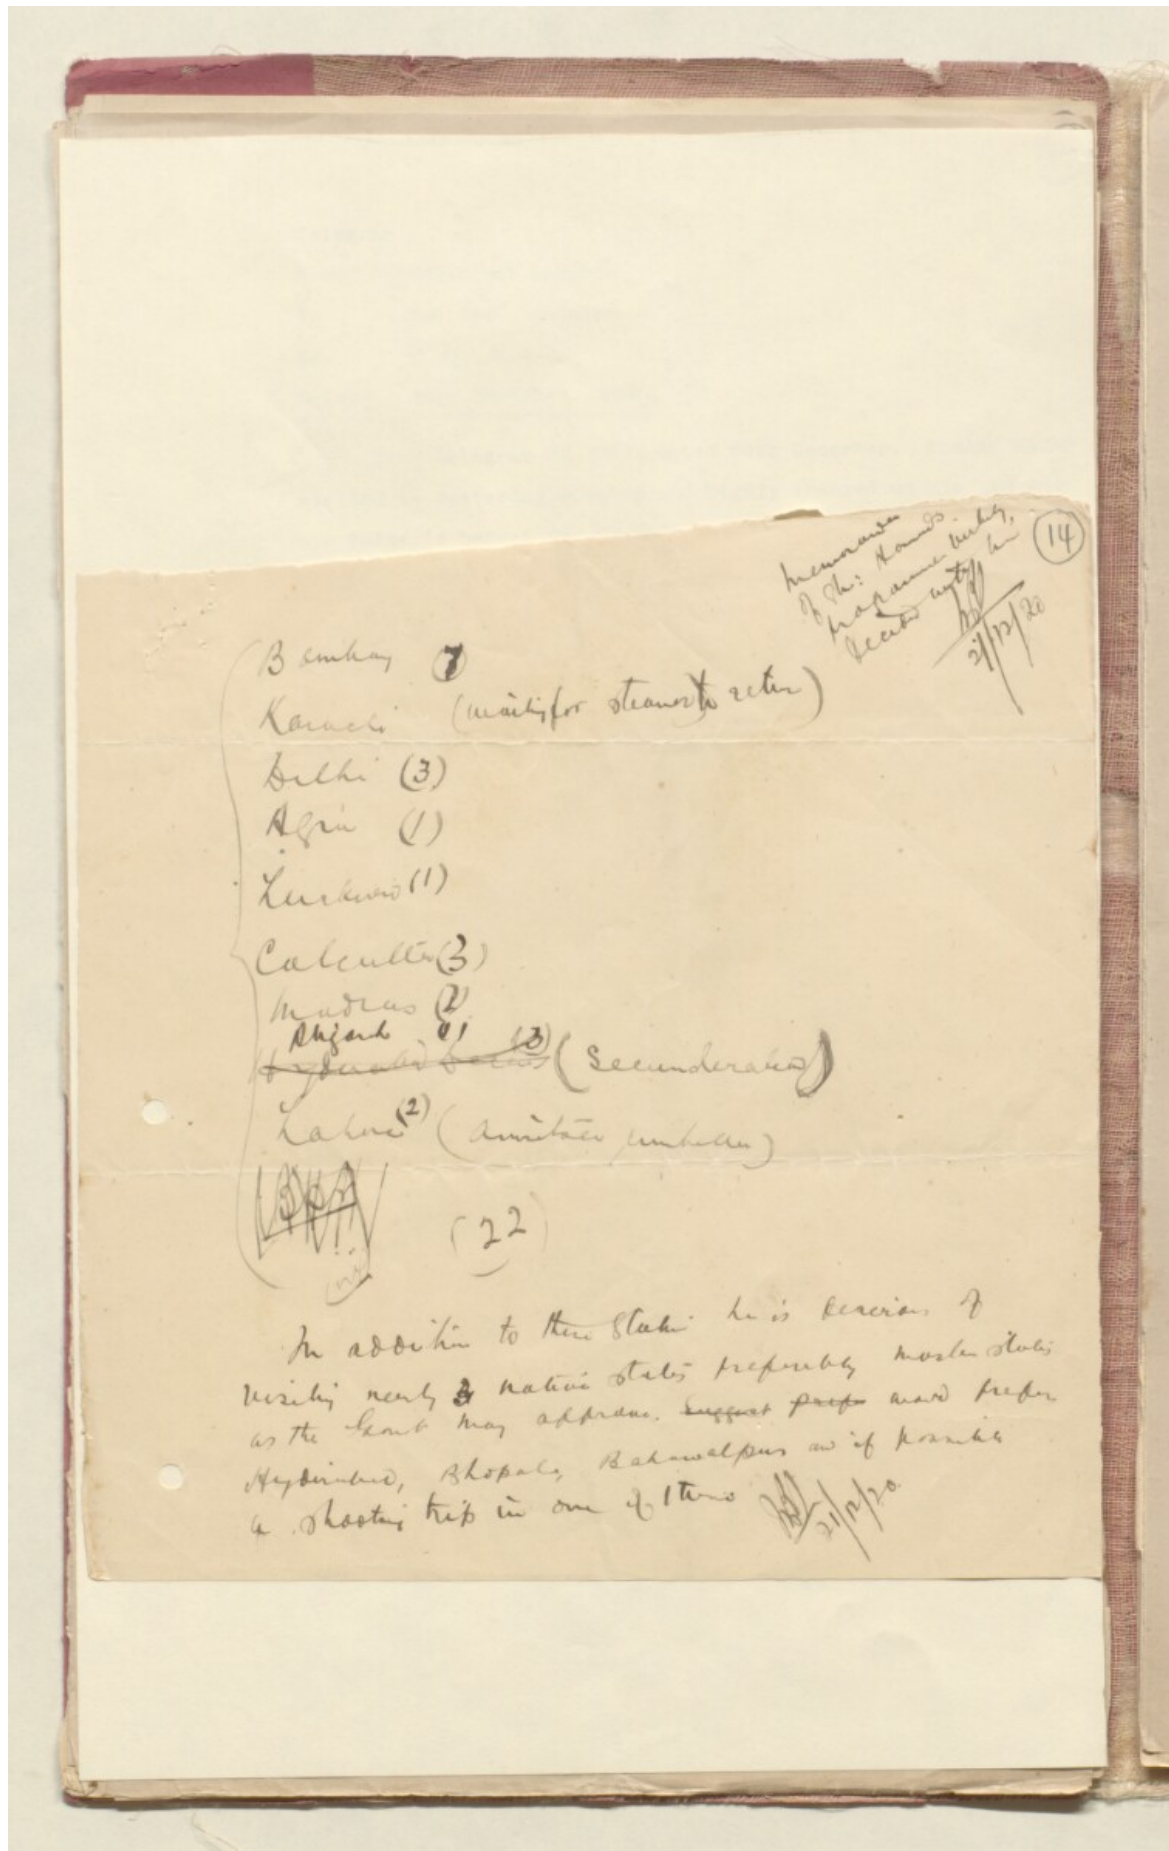 (14)
Memoranda
of Sh: Hamad's
programme verbally
decided with him
21/12/20
Bombay (7)
Karachi (waiting for steamer to return)
Delhi (3)
Agra (1)
Lucknow (1)
Calcutta (3)
Madras (2)
Aligarh (1)
Hyderabad Deccan (3) (Secunderabad)
Lahore (2) (Amritsar Umballa)
(22)
In addition to these States he is desirous of
visiting nearly 3 native states preferably Moslem states
as the Govt may approve. Suggest prefer would prefer
Hyderabad, Bhopal, Bahawalpur and if possible
a shooting trip in one of them
21/12/20